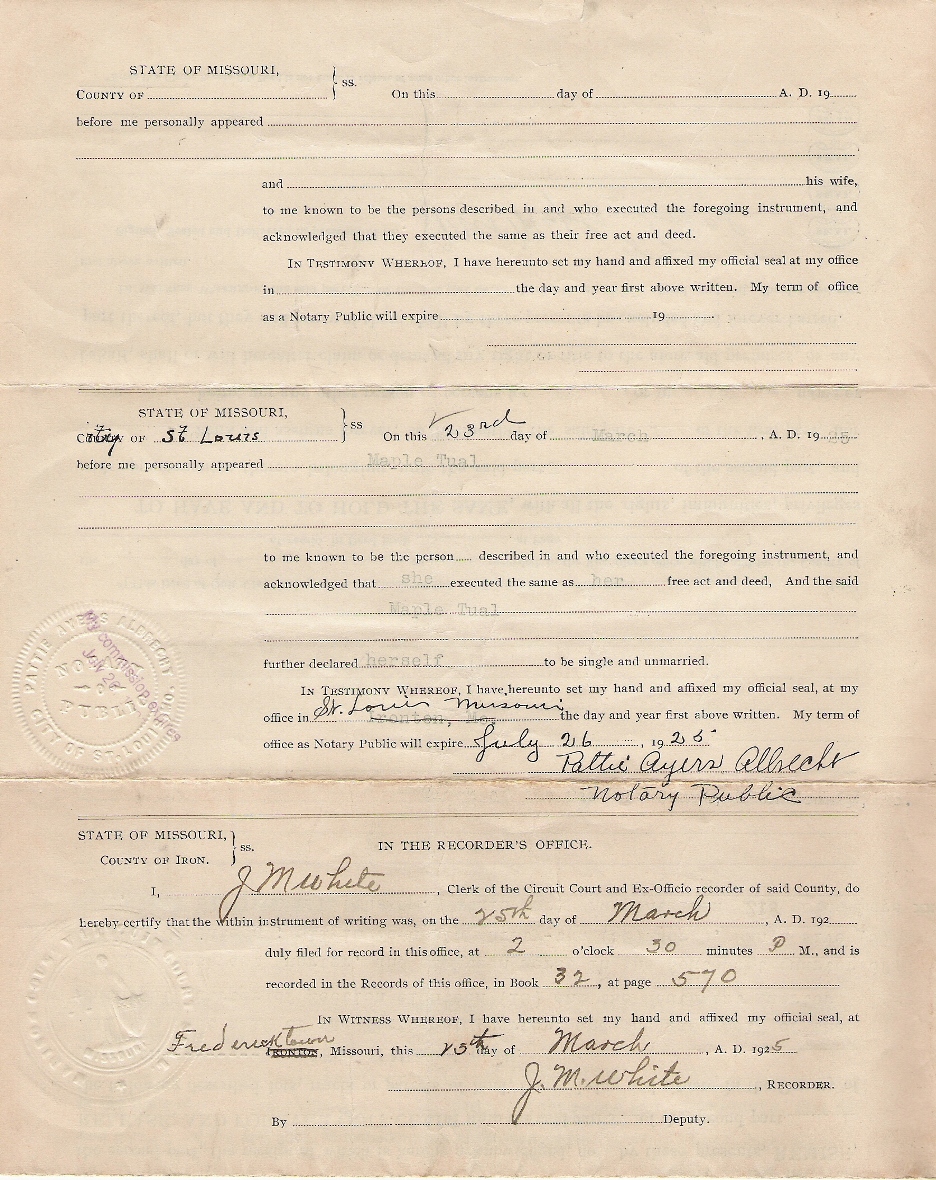 STATE OF MISSOURI,
COUNTY OF ss. On this day of A. D. 19
before me personally appeared
and his wife,
to me known to be the persons described in and who executed the foregoing instrument, and
acknowledged that they executed the same as their free act and deed.
IN TESTIMONY WHEREOF, I have hereunto set my hand and affixed my official seal at my office
in the day and year first above written. My term of office
as a Notary Public will expire 19
STATE OF MISSOURI,
City OF St Louis ss On this 23rd day of March, A. D. 1925
before me personally appeared Maple Tual
to me known to be the person described in and who executed the foregoing instrument, and
acknowledged that she executed the same as her free act and deed, And the said
Maple Tual
further declared herself to be single and unmarried.
IN TESTIMONY WHEREOF, I have hereunto set my hand and affixed my official seal, at my
office in St. Louis Missouri Ironton, Mo. the day and year first above written. My term of
office as Notary Public will expire July 26, 1925
Pattie Ayers Albrecht
Notary Public
PATTIE AYERS ALBRECHT
NOTARY
PUBLIC
CITY OF ST. LOUIS
My commission expires
July 26
STATE OF MISSOURI,
COUNTY OF IRON. ss. IN THE RECORDER'S OFFICE.
I, J M White, Clerk of the Circuit Court and Ex-Officio recorder of said County, do
hereby certify that the within instrument of writing was, on the 25th day of March, A. D. 192
duly filed for record in this office, at 2 o'clock 30 minutes P M., and is
recorded in the Records of this office, in Book 32, at page 570
IN WITNESS WHEREOF, I have hereunto set my hand and affixed my official seal, at
Fredericktown IRONTON, Missouri, this 25th day of March, A. D. 1925
J. M. White, RECORDER.
By Deputy.